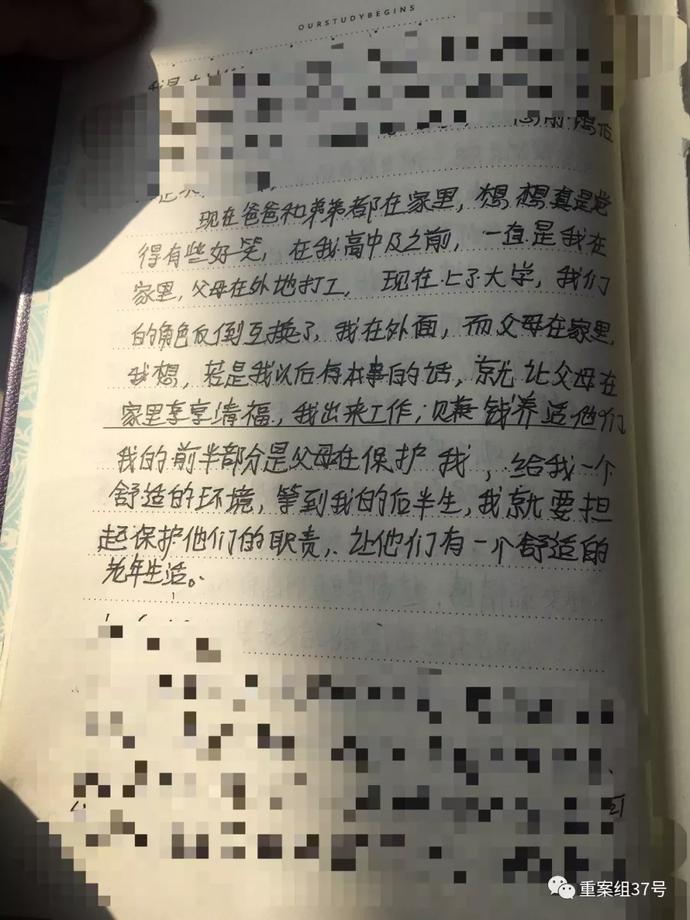 OURSTUDYBEGINS
现在爸爸和弟弟都在家里，想想真是觉
得有些好笑，在我高中及之前，一直是我在
家里，父母在外地打工，现在上了大学，我们
的角色反倒互换了，我在外面，而父母在家里，
我想，若是我以后有本事的话，就让父母在
家里享享清福，我出来工作，赚钱养活他们，
我的前半部分是父母在保护我，给我一个
舒适的环境，等到我的后半生，我就要担
起保护他们的职责，让他们有一个舒适的
老年生活。
重案组37号